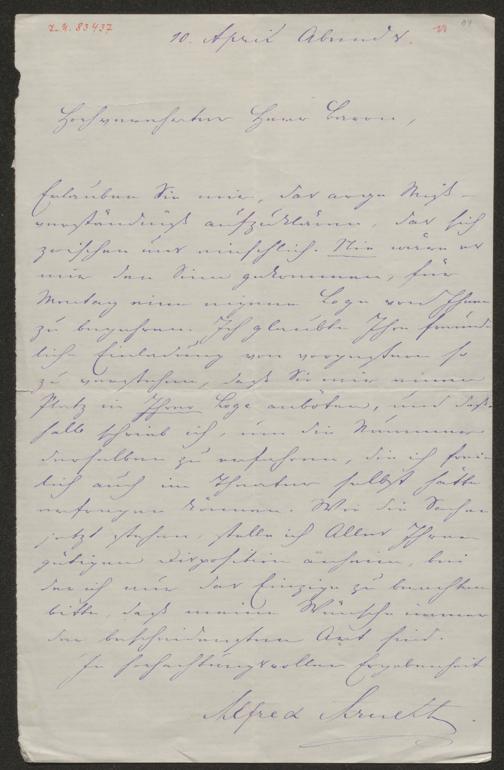 I. N. 83437
10. April Abends.
Hochverehrter Herr Baron,
Erlauben Sie mir, das arge Miß-
verständniß aufzuklären, das sich
zwischen uns einschlich. Nie wäre es
mir in den Sinn gekommen, für
Montag eine eigene Loge von Ihnen
zu begehren. Ich glaubte Ihre freund-
liche Einladung von vorgestern so
zu verstehen, daß Sie mir einen
Platz in Ihrer Loge anböten, und deß-
halb schrieb ich, um die Nummer
derselben zu erfahren, die ich frei-
lich auch im Theater selbst hätte
erfragen können. Wie die Sachen
jetzt stehen, stelle ich Alles Ihrer
gütigen Disposition anheim, bei
der ich nur das Einzige zu beachten
bitte, daß meine Wünsche immer
der bescheidensten Art sind.
In hochachtungsvoller Ergebenheit
Alfred